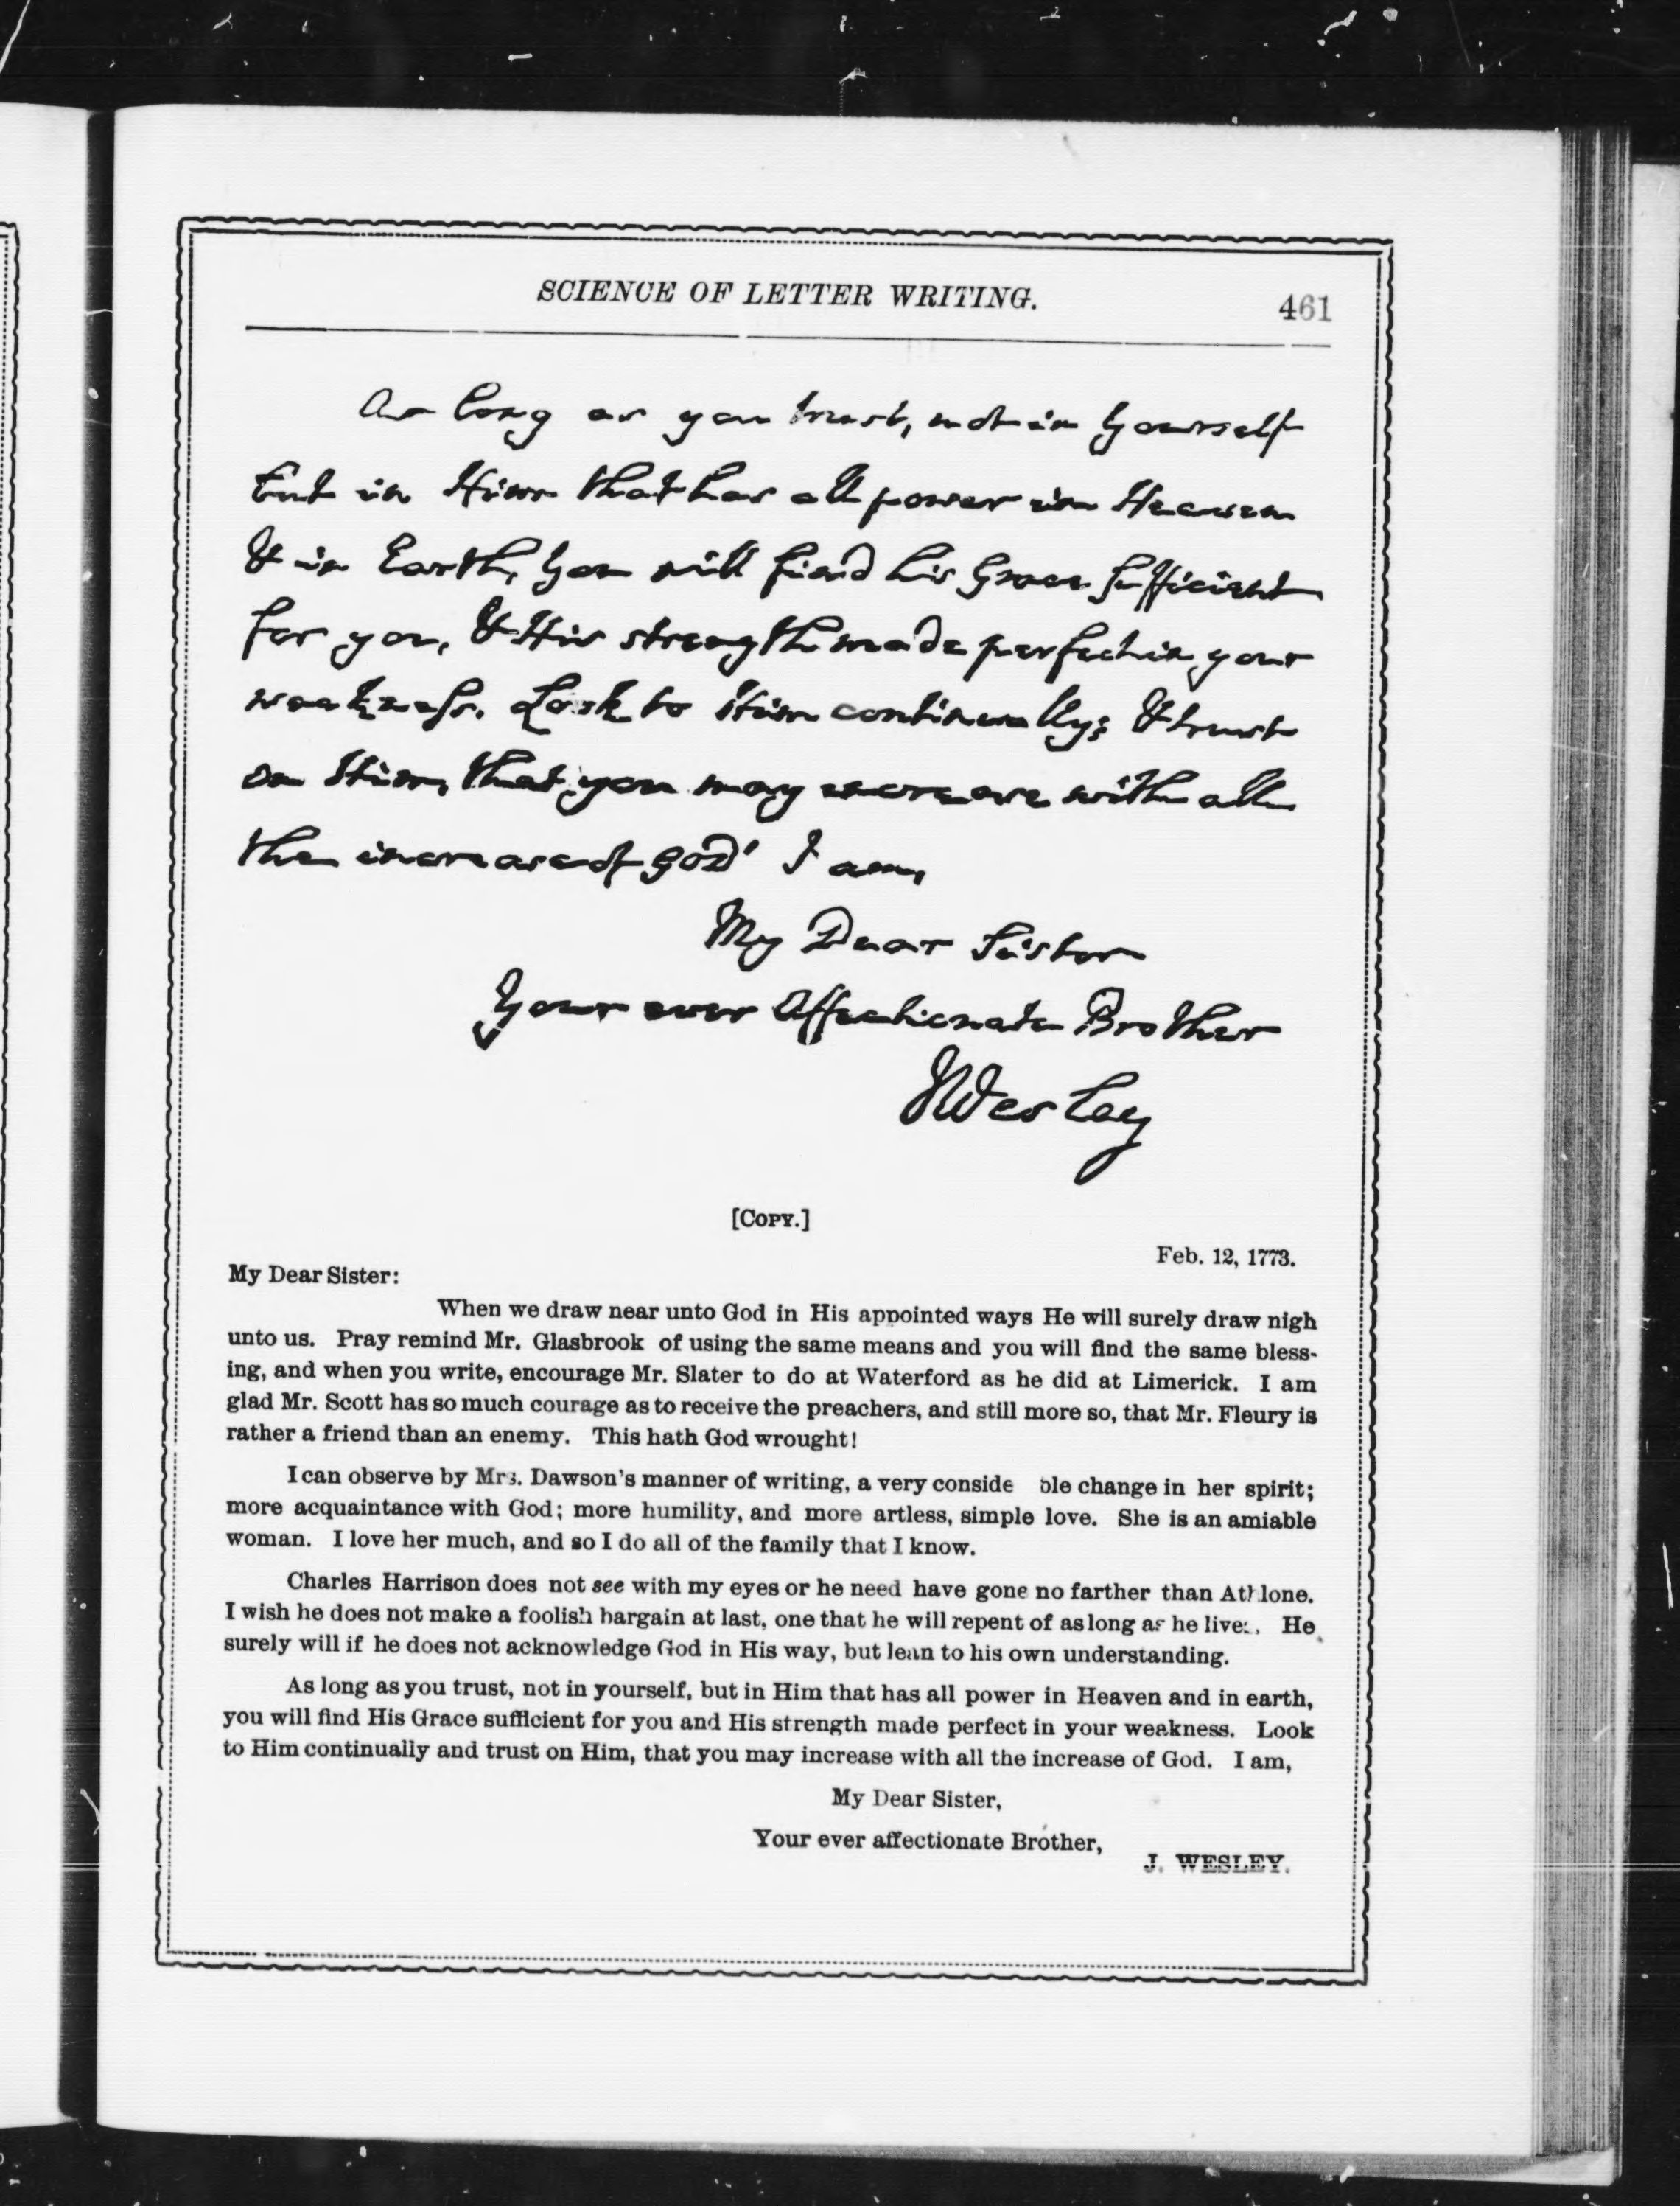 SCIENCE OF LETTER WRITING.
461
As long as you trust, not in yourself
but in Him that has all power in Heaven
& in Earth, you will find his Grace sufficient
for you, & His strength made perfect in your
weakness. Look to Him continually; & trust
on Him, that you may increase with all
the increase of GOD' I am,
My Dear Sister
Your ever Affectionate Brother
JWesley
[COPY.]
Feb. 12, 1773.
My Dear Sister:
When we draw near unto God in His appointed ways He will surely draw nigh
unto us. Pray remind Mr. Glasbrook of using the same means and you will find the same bless-
ing, and when you write, encourage Mr. Slater to do at Waterford as he did at Limerick. I am
glad Mr. Scott has so much courage as to receive the preachers, and still more so, that Mr. Fleury is
rather a friend than an enemy. This hath God wrought!
I can observe by Mrs. Dawson's manner of writing, a very conside ble change in her spirit;
more acquaintance with God; more humility, and more artless, simple love. She is an amiable
woman. I love her much, and so I do all of the family that I know.
Charles Harrison does not see with my eyes or he need have gone no farther than Athlone.
I wish he does not make a foolish bargain at last, one that he will repent of as long as he lives. He
surely will if he does not acknowledge God in His way, but lean to his own understanding.
As long as you trust, not in yourself, but in Him that has all power in Heaven and in earth,
you will find His Grace sufficient for you and His strength made perfect in your weakness. Look
to Him continually and trust on Him, that you may increase with all the increase of God. I am,
My Dear Sister,
Your ever affectionate Brother,
J. WESLEY.